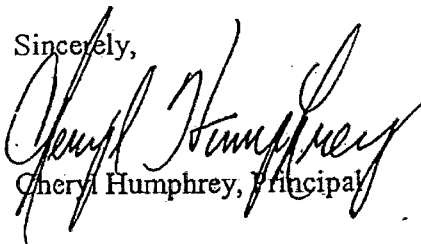 Sincerely,
Cheryl Humphrey
Cheryl Humphrey, Principal